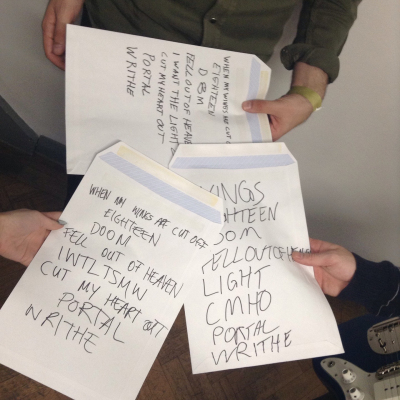 WHEN MY WINGS ARE CUT O
EIGHTEEN
DOOM
FELL OUT OF HEAVE
I WANT THE LIGHT
CUT MY HEART OUT
PORTAL
WRITHE
WHEN MY WINGS ARE CUT OFF
EIGHTEEN
DOOM
FELL OUT OF HEAVEN
IWTLTSMW
CUT MY HEART OUT
PORTAL
WRITHE
WINGS
GHTEEN
OOM
FELL OUT OF HEAVEN
LIGHT
CMHO
PORTAL
WRITHE